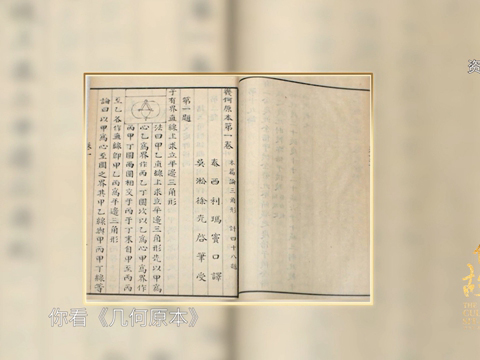 资
幾何原本第一卷
本篇論三角形 計四十八題
泰西利瑪竇口譯
吳淞徐光啓筆受
第一題
于有界直線上求立平邊三角形
法曰甲乙直線上求立平邊三角形先以甲爲
心乙爲界作丙乙丁圜次以乙爲心甲爲界作
丙甲丁圜兩圜相交于丙于丁末自甲至丙丙
至乙各作直線卽甲乙丙爲平邊三角形
論曰以甲爲心至圜之界其甲乙線與甲丙甲丁線等
你看《几何原本》